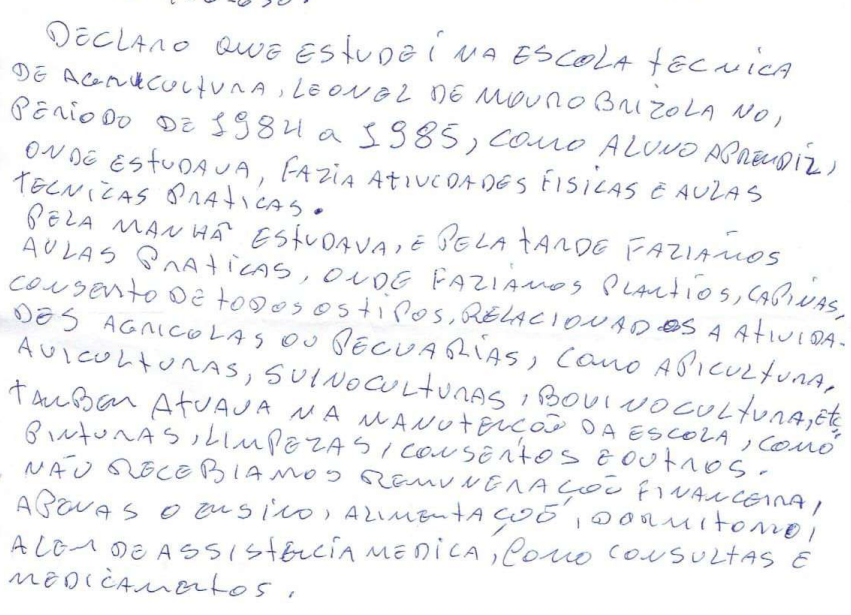 DECLARO QUE ESTUDEI NA ESCOLA TECNICA
DE AGRICULTURA, LEONEL DE MOURO BRIZOLA NO,
PERIODO DE 1984 a 1985, COMO ALUNO APRENDIZ,
ONDE ESTUDAVA, FAZIA ATIVIDADES FISICAS E AULAS
TECNICAS PRATICAS.
PELA MANHÃ ESTUDAVA, E PELA TARDE FAZIAMOS
AULAS PRATICAS, ONDE FAZIAMOS PLANTIOS, CAPINAS,
CONSERTO DE TODOS OS TIPOS, RELACIONADOS A ATIVIDA-
DES AGRICOLAS OU PECUARIAS, COMO APICULTURA,
AVICULTURAS, SUINOCULTURAS, BOVINOCULTURA, ETC,
TAMBEM ATUAVA NA MANUTENÇÃO DA ESCOLA, COMO
PINTURAS, LIMPEZAS, CONSERTOS E OUTROS.
NÃO RECEBIAMOS REMUNERAÇÃO FINANCEIRA,
APENAS O ENSINO, ALIMENTAÇÃO, DORMITORIO,
ALEM DE ASSISTENCIA MEDICA, COMO CONSULTAS E
MEDICAMENTOS.